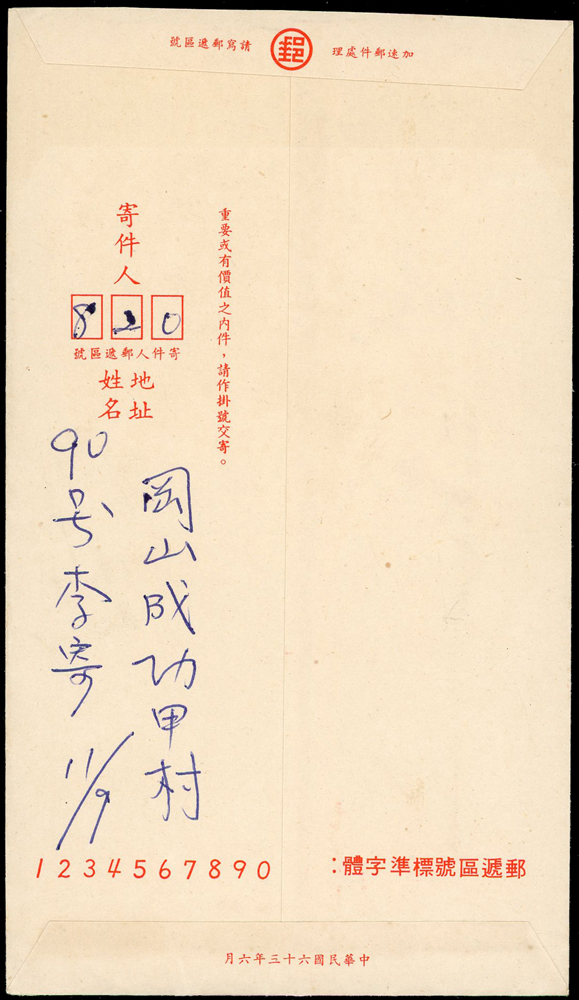 請寫郵遞區號
郵
加速郵件處理
重要或有價值之內件，請作掛號交寄。
寄件人
820
寄件人郵遞區號
地址
姓名
岡山成功甲村
90号李寄 11/9
郵遞區號標準字體：
1234567890
中華民國六十三年六月